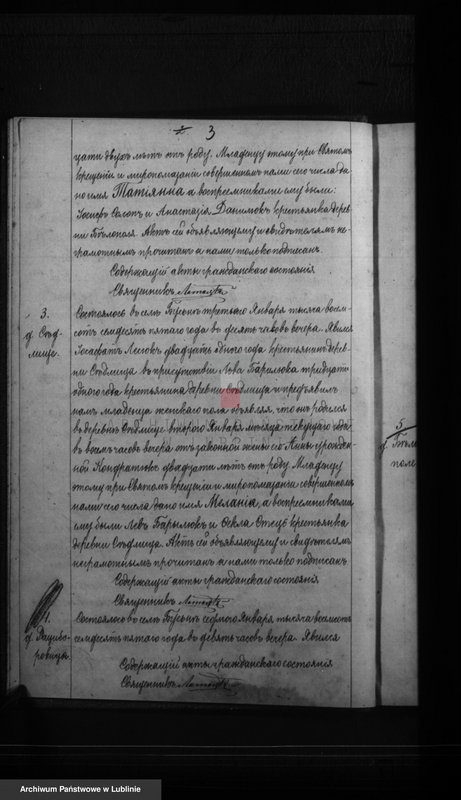 3
цати двухъ лѣтъ отъ роду. Младенцу этому при Святомъ
крещеніи и миропомазаніи совершенномъ нами сего числа да
но имя Татіянна а воспреемниками ему были:
и Анастазія Данилюкъ крестьянка дерев
ни Бѣлополя. Актъ сей объявляющему и свидѣтелямъ не-
грамотнымъ прочитанъ а нами только подписанъ.
Содержащій акты гражданскаго состоянія
Священникъ
3.
д. Сѣд-
лища.
Состоялось въ селѣ Бусьнѣ третьяго Января тысяча восем-
сотъ семдесятъ пятаго года въ десять часовъ вечера. Явился
Іосафатъ двадцать одного года крестьянинъ дерев-
ни Сѣдлища въ присутствіи Льва Барылюка тридцать
одного года крестьянина деревни Сѣдлища и предъявилъ
намъ младенца женскаго пола объявляя, что онъ родился
въ деревнѣ Сѣдлище второго Января мѣсяца текущаго года
въ восемь часовъ вечера отъ законной жены его Анны урожден-
ной Кондратюкъ двадцати лѣтъ отъ роду. Младенцу
этому при Святомъ крещеніи и миропомазаніи совершенномъ
нами сего числа дано имя Меланія, а воспреемниками
ему были Левъ Барылюкъ и Ѳекла Стецъ крестьянка
деревни Сѣдлища. Актъ сей объявляющему и свидѣтелямъ
неграмотнымъ прочитанъ а нами только подписанъ
Содержащій акты гражданскаго состоянія
Священникъ
4.
д.
ровища.
Состоялось въ селѣ Бусьнѣ седмого Января, тысяча восемсотъ
семдесятъ пятаго года въ девять часовъ вечера. Явился
Содержащій акты гражданскаго состоянія
Священникъ
5
д. Бѣло
поле
Archiwum Państwowe w Lublinie